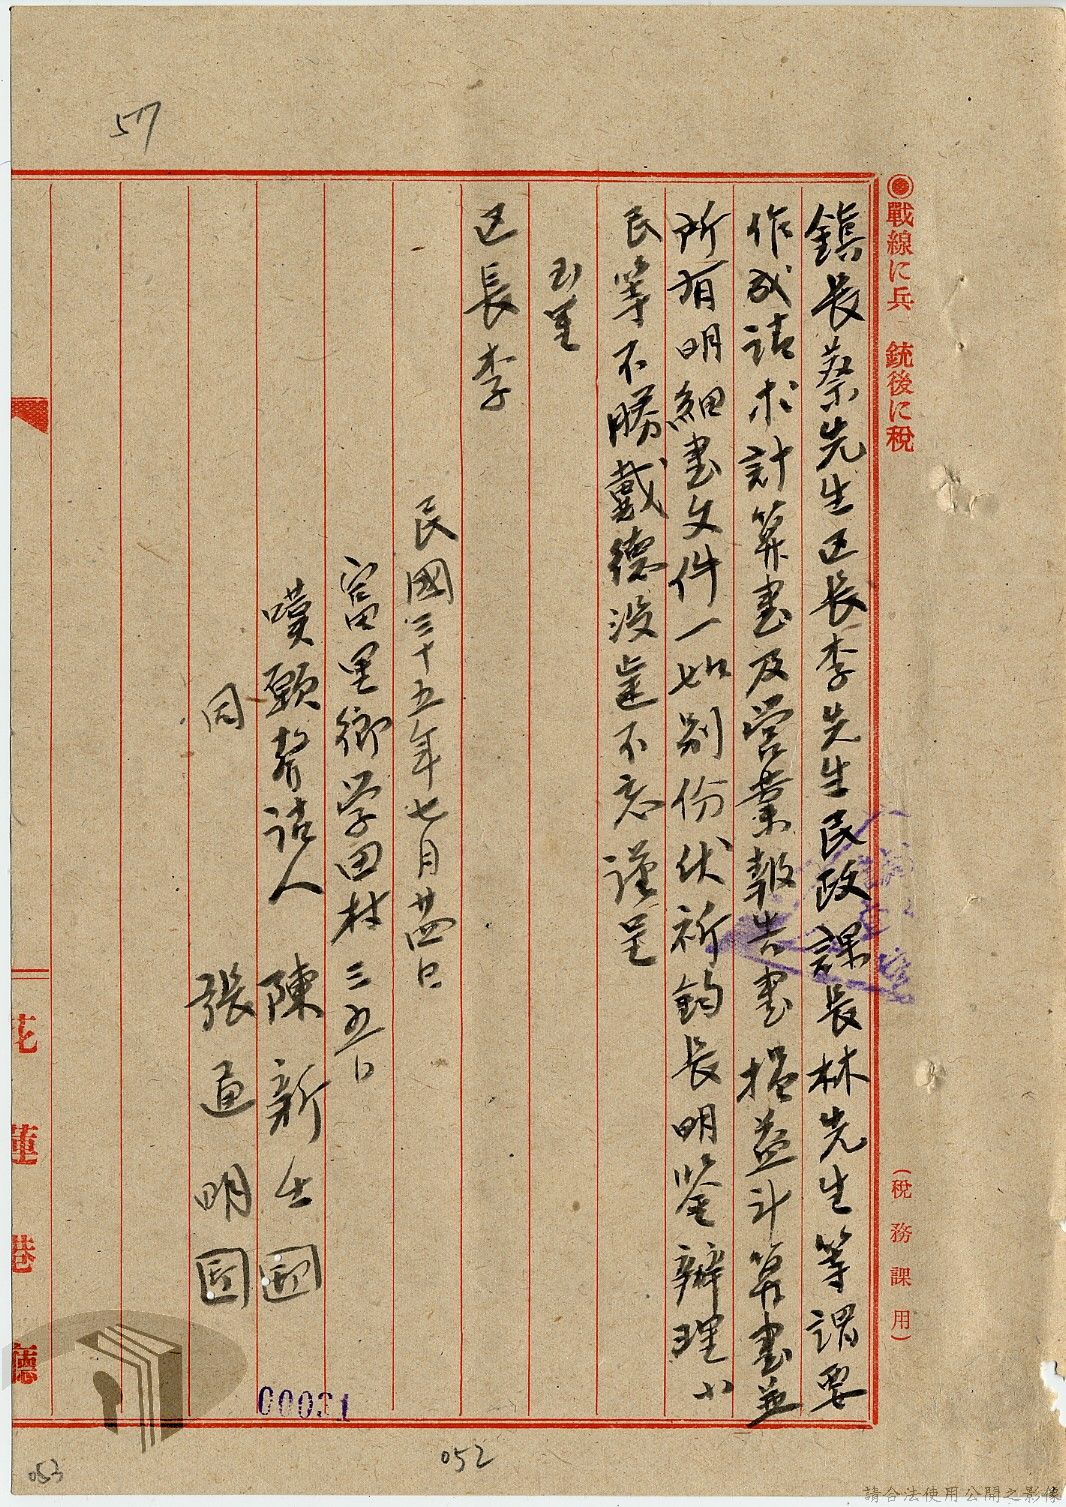 57
◉戰線に兵 銃後に稅
(稅務課用)
鎮長蔡先生区長李先生民政課長林先生等謂要
作成請求計算書及営業報告書損益計算書並
所有明細書文件一如別份伏祈鈞長明鉴辦理小
民等不勝戴德没歯不忘謹呈
玉里
区長李
民國三十五年七月廿四日
富里鄉学田村三五口
嘆願聲請人 陳新士 印
同 張通明 印
花蓮港廳
00031
052
053
請合法使用公開之影像